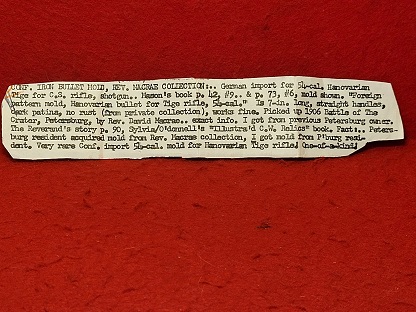 CONF. IRON BULLET MOLD, REV. MACRAE COLLECTION:.. German import for 54-cal. Hanovarian
Tige for C.S. rifle, shotgun.. Mason's book p. 42, #9.. & p. 73, #6, mold shown. "Foreign
pattern mold, Hanovarian bullet for Tige rifle, 54-cal." Is 7-in. long, straight handles,
dark patina, no rust (from private collection), works fine. Picked up 1906 Battle of The
Crater, Petersburg, by Rev. David Macrae.. exact info. I got from previous Petersburg owner.
The Reverand's story p. 90, Sylvia/O'donnell's "Illustra'd C.W. Relics" book. Fact:.. Peters-
burg resident acquired mold from Rev. Macrae collection, I got mold from P'burg resi-
dent. Very rare Conf. import 54-cal. mold for Hanovarian Tige rifle. One-of-a-kind!